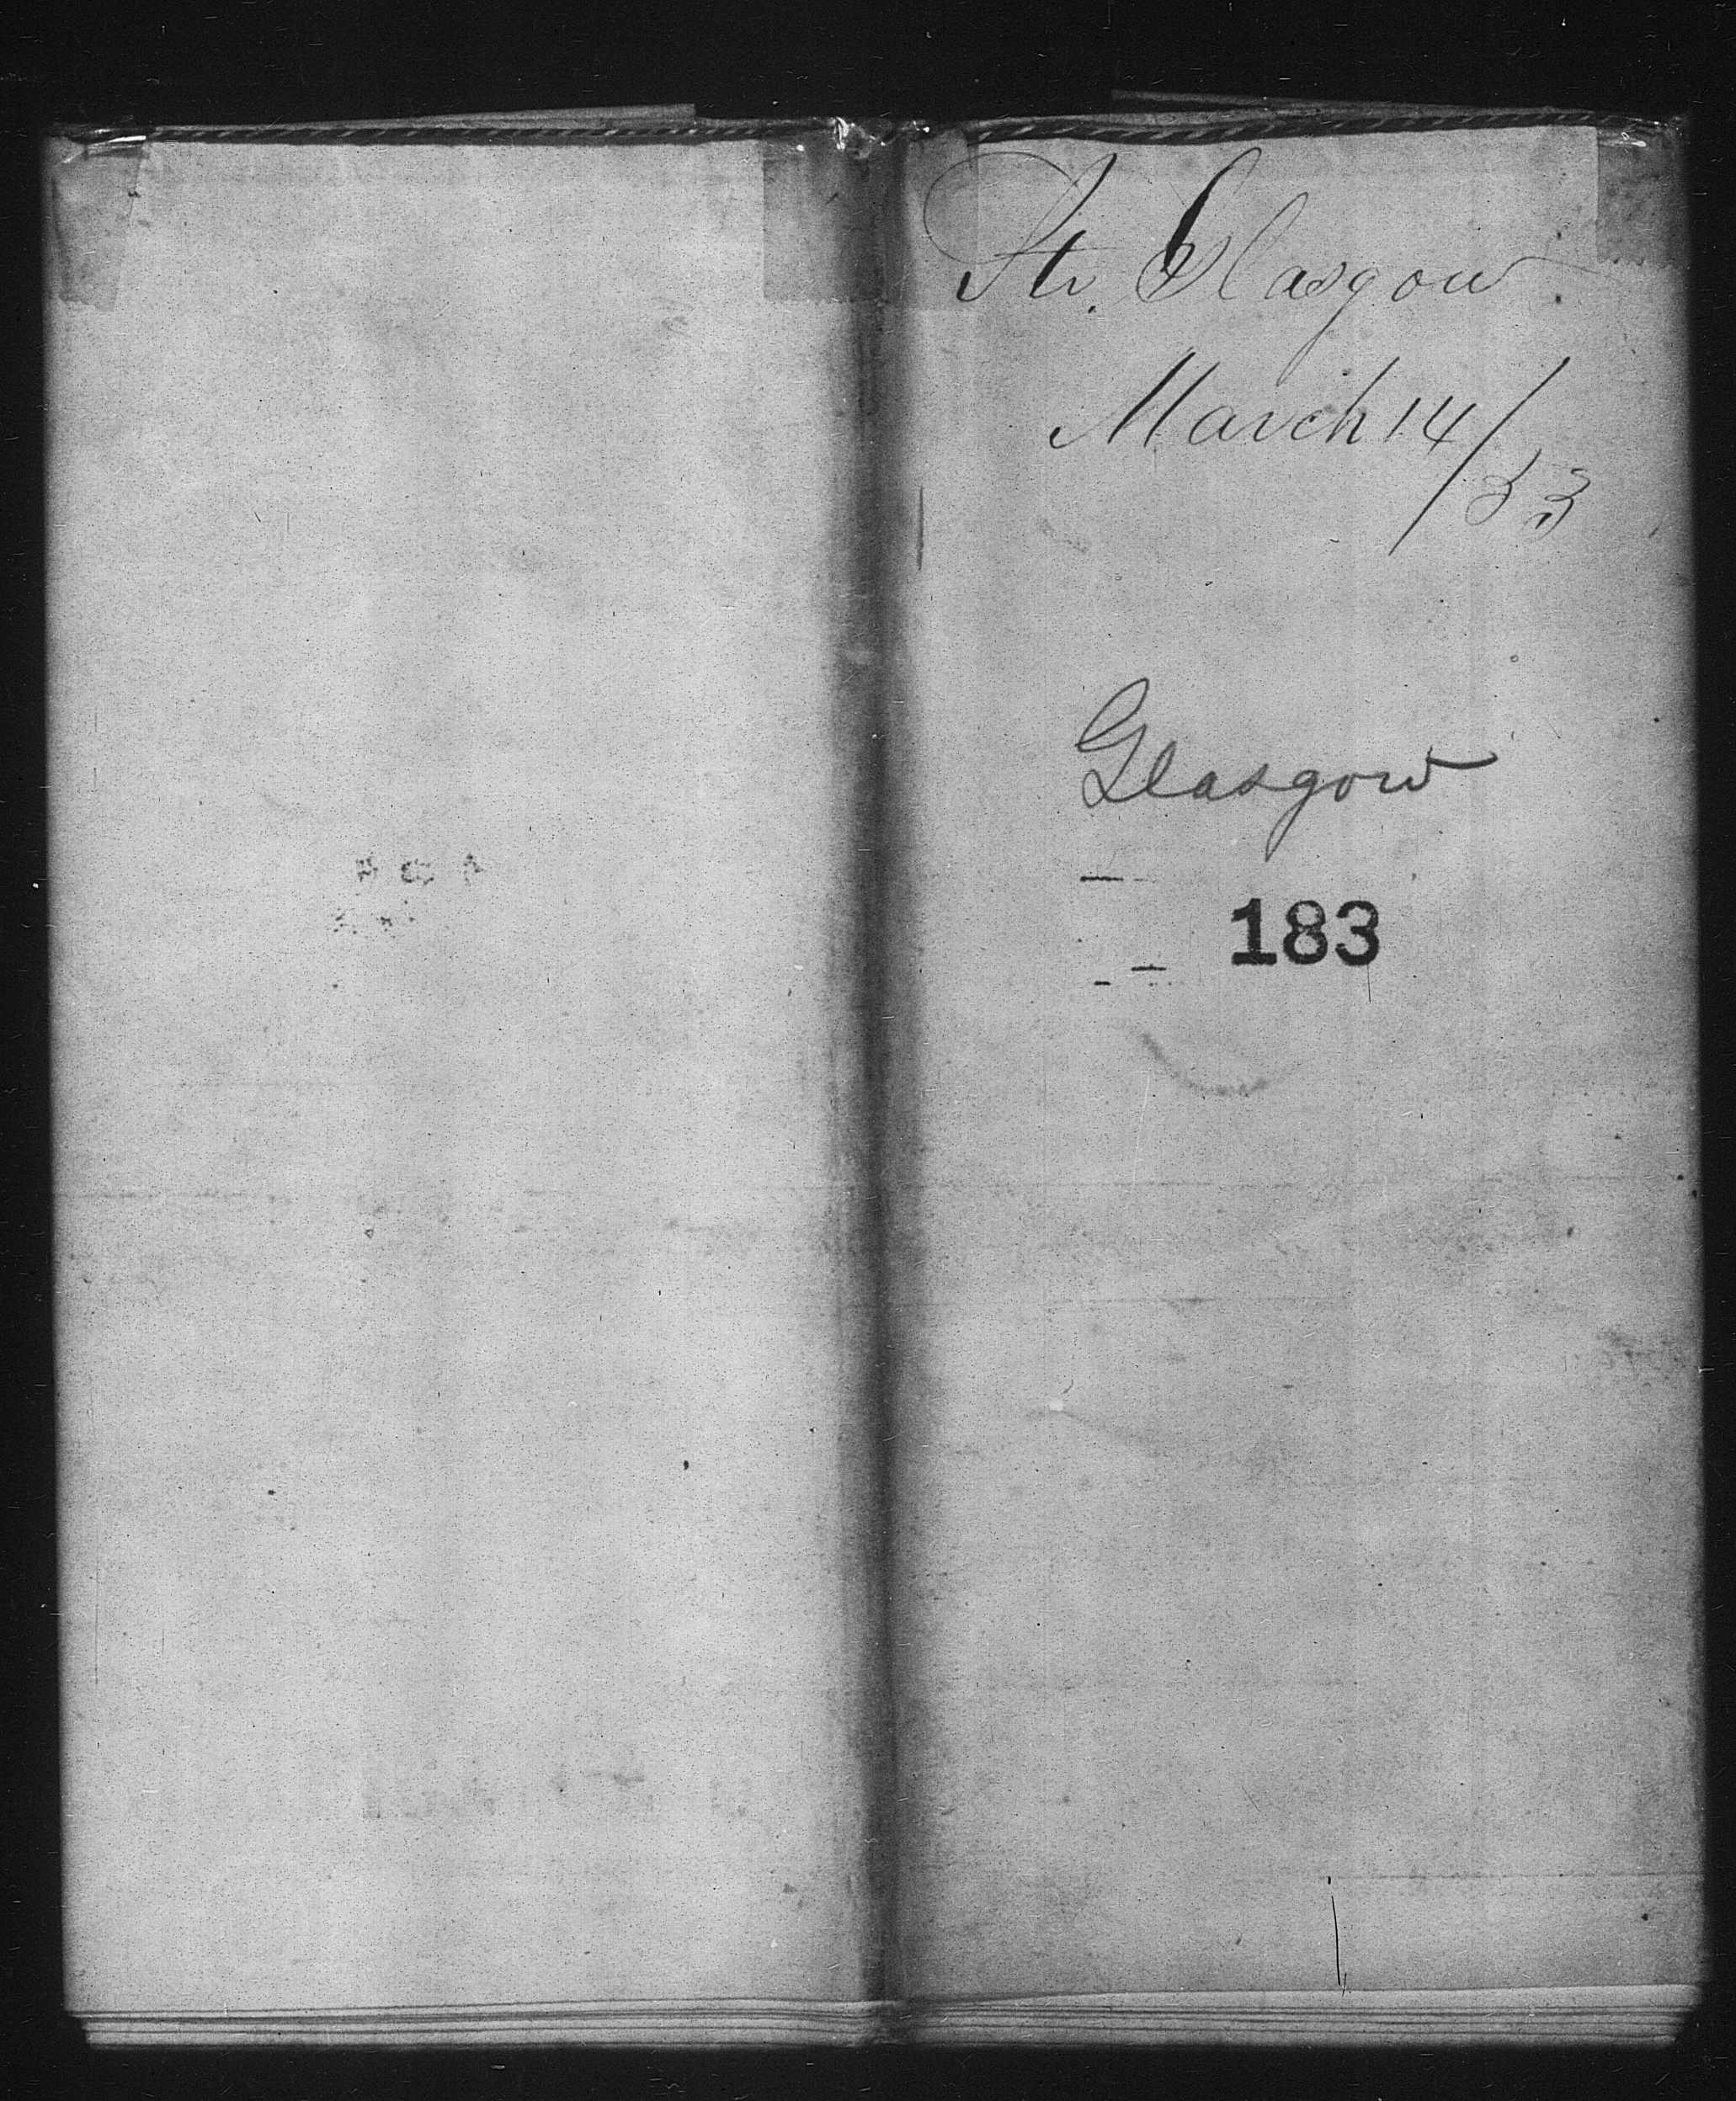 Str. Glasgow
March 14/
53
Glasgow
183